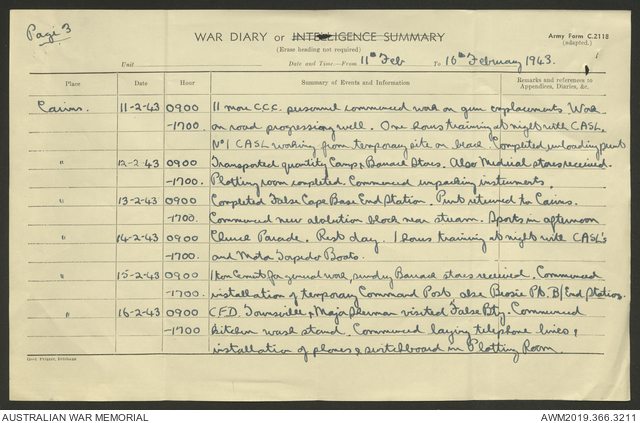 Page 3
WAR DIARY or INTELLIGENCE SUMMARY
Army Form C.2118
(adapted.)
(Erase heading not required)
Unit Date and Time—From 11th Feb To 16th February 1943.
Place Date Hour Summary of Events and Information Remarks and references to Appendices, Diaries, &c.
Cairns. 11-2-43 0900 11 more C.C.C. personnel commenced work on gun emplacements. Work
-1700. on road progressing well. One hours training at night with CASL.
No 1 CASL working from temporary site on beach. Completed unloading punt
" 12-2-43 0900 Transported quantity Camp & Barrack Stores. Also Medical stores received.
-1700. Plotting room completed. Commenced unpacking instruments.
" 13-2-43 0900 Completed False Cape Base End Station. Punt returned to Cairns.
1700. Commenced new ablution block near stream. Sports in afternoon
" 14-2-43 0900 Church Parade. Rest day. 1 hours training at night with CASL's
-1700. and Motor Torpedo Boats.
" 15-2-43 0900 1 ton Cement for general work, sundry Barrack stores received. Commenced
-1700. installation of temporary Command Post also Bessie Pt. B/End Station.
" 16-2-43 0900 C.F.D. Townsville & Major Sherman visited False Bty. Commenced
-1700 kitchen wash stand. Commenced laying telephone lines &
installation of phones & switchboard in Plotting Room.
AUSTRALIAN WAR MEMORIAL
AWM2019.366.3211